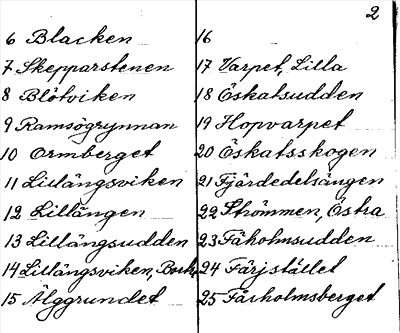 2
6 Blacken
7 Skepparstenen
8 Blötviken
9 Ramsögrynnan
10 Ormberget
11 Lillängsviken
12 Lillängen
13 Lillängsudden
14 Lillängsviken,
15 Älggrundet
16
17 Varpet, Lilla
18 Öskatsudden
19 Hopvarpet
20 Öskatsskogen
21 Fjärdedelsängen
22 Strömmen, Östra
23 Fåholmsudden
24 Färjstället
25 Fårholmsberget